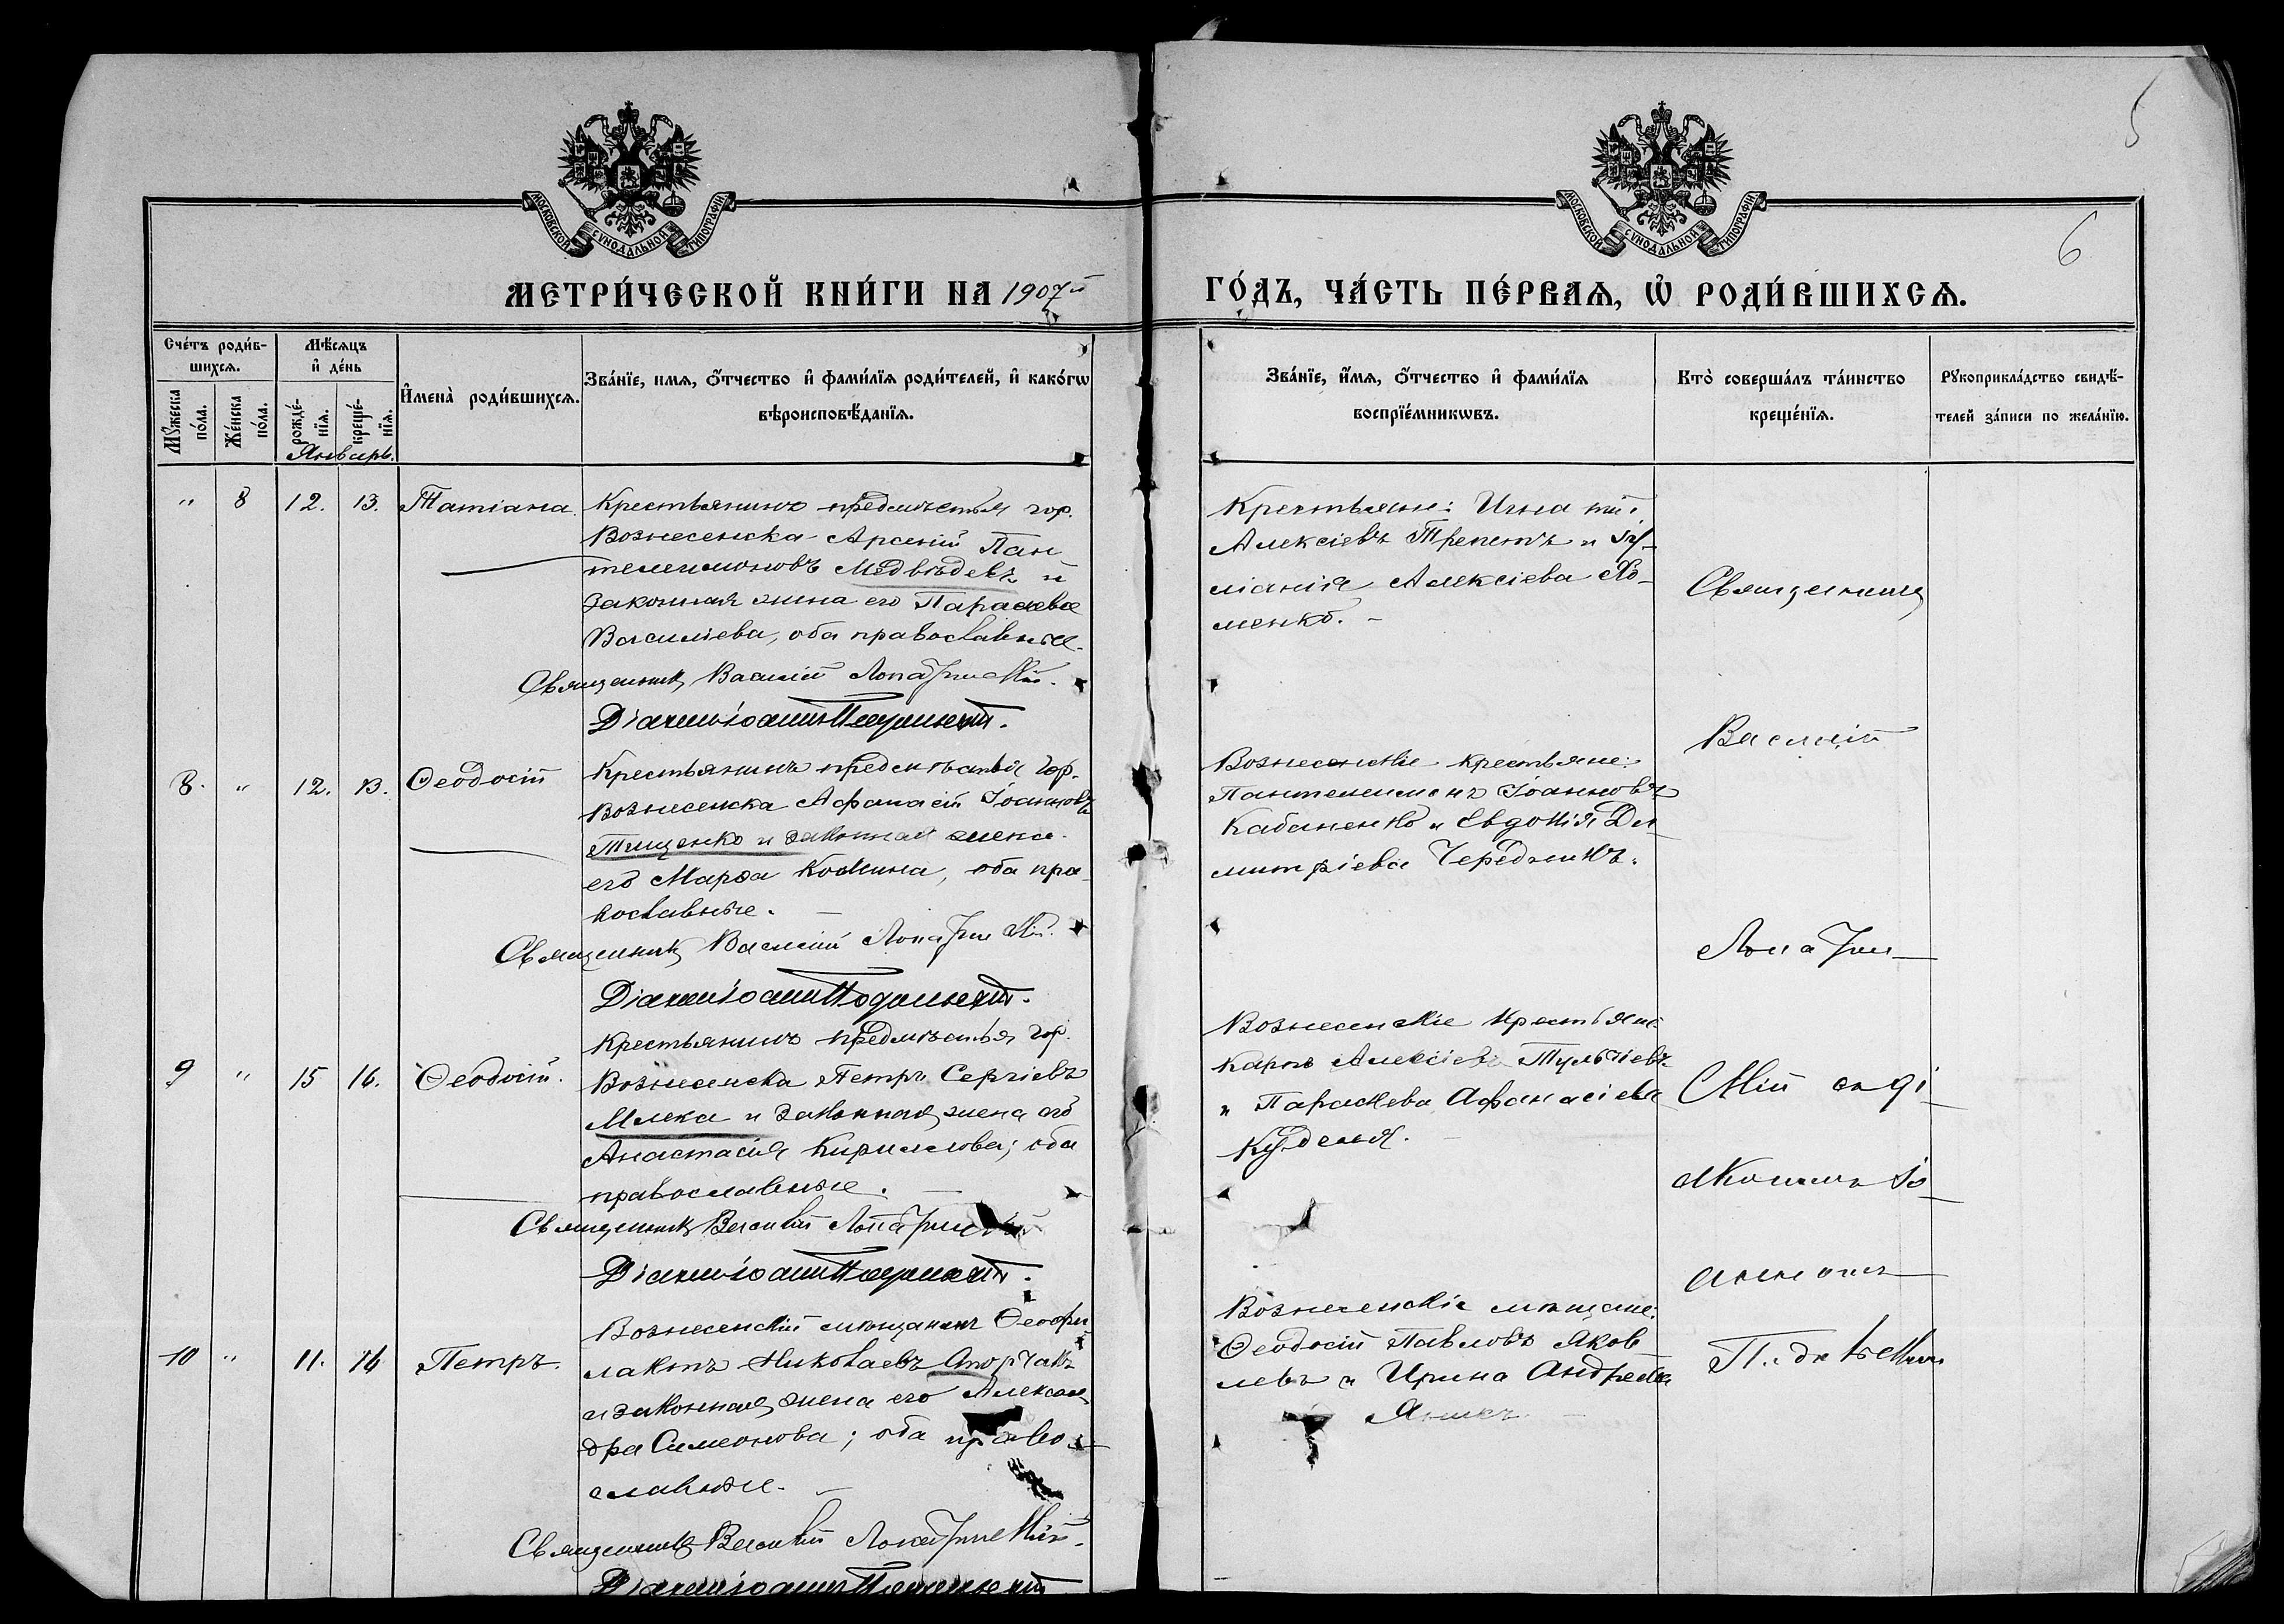 5
6
МОСКОВСКОЙ СУНОДАЛЬНОЙ ТИПОГРАФІИ
МОСКОВСКОЙ СУНОДАЛЬНОЙ ТИПОГРАФІИ
МЕТРИ́ЧЕСКОЙ КНИ́ГИ НА 1907й
ГО́ДЪ, ЧА́СТЬ ПЕ́РВАѦ, Ѡ҆ РОДИ́ВШИХСѦ.
Сче́тъ роди́в-
шихсѧ.
Мꙋ́жеска
по́ла.
Же́нска
по́ла.
Мѣ́сѧцъ
и҆ де́нь
рожде́-
нїѧ.
креще́-
нїѧ.
Январь.
И҆мена̀ роди́вшихсѧ.
Зва́нїе, имѧ, ѻ҆́тчество и҆ фами́лїѧ роди́телей, и҆ како́гѡ
вѣроисповѣ́данїѧ.
Зва́нїе, и҆́мѧ, ѻ҆́тчество и҆ фами́лїѧ
воспрїе́мникѡвъ.
Кто̀ соверша́лъ та́инство
креще́нїѧ.
Рꙋкоприкла́дство свидѣ́-
телей за́писи по жела́нїю.
" 8 12. 13. Татіана.
Крестьянинъ предмѣстья гор.
Вознесенска Арсеній Пан
телеимоновъ Медвѣдевъ и
законная жена его Параскева
Василіева, оба православные.
Священникъ Василій
Крестьяне: Игнатій
Алексіевъ Трепетъ и
Алексіева Хо-
менко.
8. " 12. 13. Ѳеодосій
Крестьянинъ предмѣстья гор.
Вознесенска Афанасій Іоанновъ
Тищенко и законная жена
его Марѳа Космина, оба пра
вославные.
Священникъ Василій
Вознесенскіе крестьяне:
Пантелеимонъ Іоанновъ
Кабаненко и Евдокія Ди
митріева Чередникъ.
9 " 15 16. Ѳеодосій.
Крестьянинъ предмѣстья гор.
Вознесенска Петръ Сергіевъ
Млека и законная жена его
Анастасія Кириллова; оба
православные.
Священникъ Василій
Вознесенскіе крестьяне:
Карпъ Алексіевъ
и Параскева Афанасіева
Куделя.
10 " 11. 16 Петръ.
Вознесенскій мѣщанинъ Ѳеофи
лактъ Николаевъ
и законная жена его Алексан
дра Симеонова; оба право
славные.
Священникъ Василій
Вознесенскіе мѣщане:
Ѳеодосій Павловъ Яков
левъ и Ирина Андреева
Священникъ
Василій